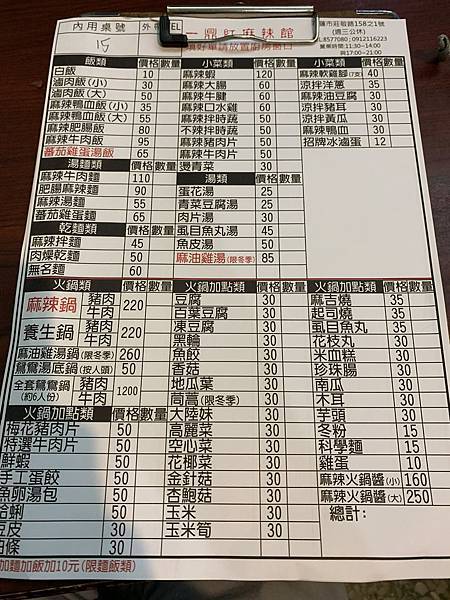 內用桌號
15
外
TEL
一鼎紅麻辣館
填好單請放置廚房窗口
蓮市莊敬路158之1號
(週三公休)
8577080 ; 0912116223
營業時間:11:30~14:00
與17:00~21:00
飯類 價格 數量
白飯 10
滷肉飯(小) 30
滷肉飯(大) 50
麻辣鴨血飯(小) 35
麻辣鴨血飯(大) 55
麻辣肥腸飯 80
麻辣牛肉飯 95
番茄雞蛋湯飯 65
湯麵類 價格 數量
麻辣牛肉麵 110
肥腸麻辣麵 90
麻辣湯麵 55
番茄雞蛋麵 65
乾麵類 價格 數量
麻辣拌麵 45
肉燥乾麵 50
無名麵 60
小菜類 價格 數量
麻辣蝦 120
麻辣大腸 60
麻辣牛腱 60
麻辣口水雞 60
麻辣拌時蔬 50
不辣拌時蔬 50
麻辣豬肉片 50
麻辣牛肉片 50
燙青菜 30
湯類 價格 數量
蛋花湯 25
青菜豆腐湯 25
肉片湯 30
虱目魚丸湯 45
魚皮湯 50
麻油雞湯(限冬季) 85
小菜類 價格 數量
麻辣軟雞腳(7支) 40
涼拌洋蔥 35
麻辣油豆腐 30
涼拌豬耳 30
涼拌黃瓜 30
麻辣鴨血 30
招牌冰滷蛋 12
火鍋類 價格 數量
麻辣鍋 豬肉 牛肉 220
養生鍋 豬肉 牛肉 220
麻油雞湯鍋(限冬季) 260
鴛鴦湯底鍋(按人頭) 50
全套鴛鴦鍋(約6人份) 豬肉 牛肉 1200
火鍋加點類 價格 數量
梅花豬肉片 50
特選牛肉片 50
鮮蝦 50
手工蛋餃 50
魚卵湯包 50
蛤蜊 50
豆皮 30
條 30
火鍋加點類 價格 數量
豆腐 30
百葉豆腐 30
凍豆腐 30
黑輪 30
魚餃 30
香菇 30
地瓜葉 30
筒蒿(限冬季) 30
大陸妹 30
高麗菜 30
空心菜 30
花椰菜 30
金針菇 30
杏鮑菇 30
玉米 30
玉米筍 30
火鍋加點類 價格 數量
麻吉燒 35
起司燒 35
虱目魚丸 35
花枝丸 30
米血糕 30
珍珠腸 30
南瓜 30
木耳 30
芋頭 30
冬粉 15
科學麵 15
雞蛋 10
麻辣火鍋醬(小) 160
麻辣火鍋醬(大) 250
總計:
加麵加飯加10元(限麵飯類)